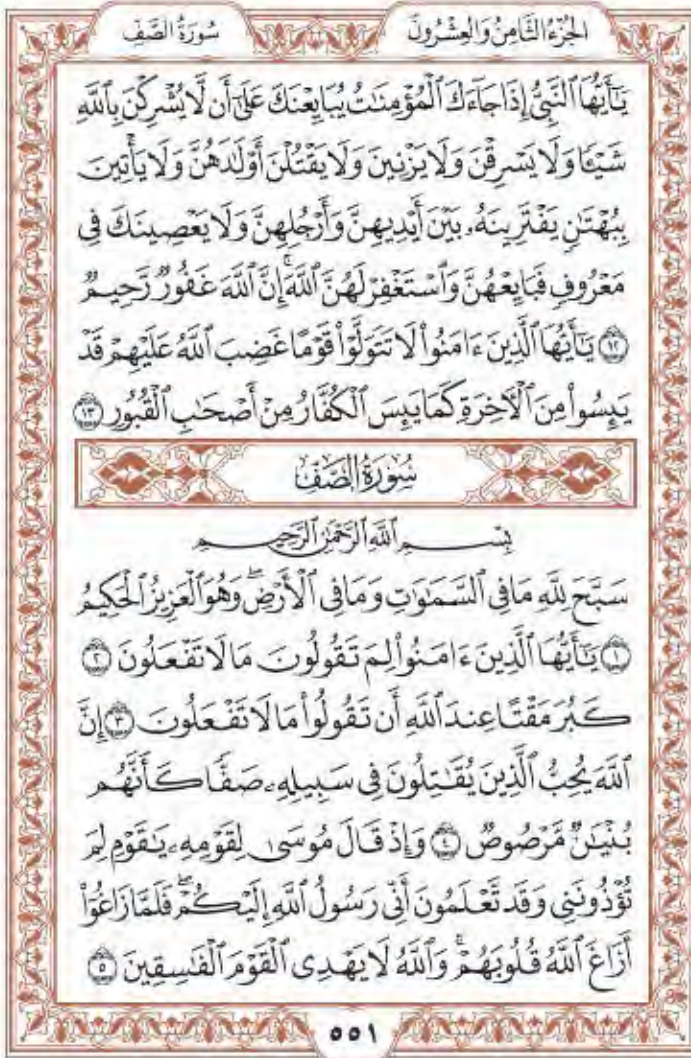 الجُزْءُ الثَّامِنُ وَالعِشْرُونَ سُورَةُ الصَّفِّ
يَـٰٓأَيُّهَا ٱلنَّبِىُّ إِذَا جَآءَكَ ٱلْمُؤْمِنَـٰتُ يُبَايِعْنَكَ عَلَىٰٓ أَن لَّا يُشْرِكْنَ بِٱللَّهِ
شَيْـًٔا وَلَا يَسْرِقْنَ وَلَا يَزْنِينَ وَلَا يَقْتُلْنَ أَوْلَـٰدَهُنَّ وَلَا يَأْتِينَ
بِبُهْتَـٰنٍ يَفْتَرِينَهُۥ بَيْنَ أَيْدِيهِنَّ وَأَرْجُلِهِنَّ وَلَا يَعْصِينَكَ فِى
مَعْرُوفٍ فَبَايِعْهُنَّ وَٱسْتَغْفِرْ لَهُنَّ ٱللَّهَ ۚ إِنَّ ٱللَّهَ غَفُورٌ رَّحِيمٌ
١٢ يَـٰٓأَيُّهَا ٱلَّذِينَ ءَامَنُوا۟ لَا تَتَوَلَّوْا۟ قَوْمًا غَضِبَ ٱللَّهُ عَلَيْهِمْ قَدْ
يَئِسُوا۟ مِنَ ٱلْـَٔاخِرَةِ كَمَا يَئِسَ ٱلْكُفَّارُ مِنْ أَصْحَـٰبِ ٱلْقُبُورِ ١٣
سُورَةُ الصَّفِّ
بِسْمِ ٱللَّهِ ٱلرَّحْمَـٰنِ ٱلرَّحِيمِ
سَبَّحَ لِلَّهِ مَا فِى ٱلسَّمَـٰوَٰتِ وَمَا فِى ٱلْأَرْضِ ۖ وَهُوَ ٱلْعَزِيزُ ٱلْحَكِيمُ
١ يَـٰٓأَيُّهَا ٱلَّذِينَ ءَامَنُوا۟ لِمَ تَقُولُونَ مَا لَا تَفْعَلُونَ ٢
كَبُرَ مَقْتًا عِندَ ٱللَّهِ أَن تَقُولُوا۟ مَا لَا تَفْعَلُونَ ٣ إِنَّ
ٱللَّهَ يُحِبُّ ٱلَّذِينَ يُقَـٰتِلُونَ فِى سَبِيلِهِۦ صَفًّا كَأَنَّهُم
بُنْيَـٰنٌ مَّرْصُوصٌ ٤ وَإِذْ قَالَ مُوسَىٰ لِقَوْمِهِۦ يَـٰقَوْمِ لِمَ
تُؤْذُونَنِى وَقَد تَّعْلَمُونَ أَنِّى رَسُولُ ٱللَّهِ إِلَيْكُمْ ۖ فَلَمَّا زَاغُوٓا۟
أَزَاغَ ٱللَّهُ قُلُوبَهُمْ ۚ وَٱللَّهُ لَا يَهْدِى ٱلْقَوْمَ ٱلْفَـٰسِقِينَ ٥
٥٥١